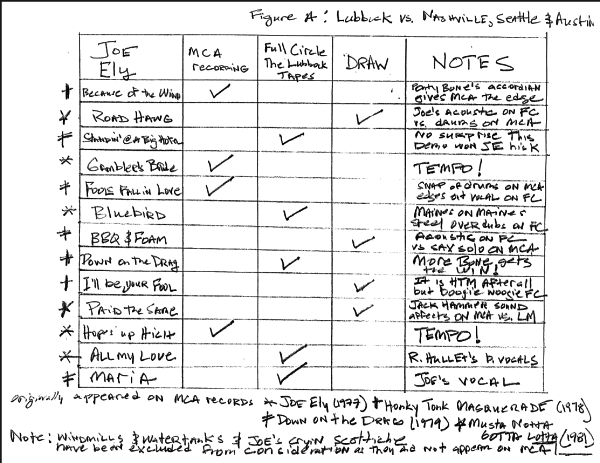 Figure A: Lubbock vs. Nashville, Seattle & Austin
JOE Ely
MCA RECORDING
Full Circle The Lubbock Tapes
DRAW
NOTES
Because of the Wind ✓ Ponty Bone's accordian gives MCA the edge
ROAD HAWG ✓ Joe's acoustic on FC vs. drums on MCA
Standin' @ A Big Hotel ✓ No surprise This Demo won JE his K
Gambler's Bride ✓ TEMPO!
FOOLS FALL in LOVE ✓ SNAP of drums on MCA edges out vocal on FC
Bluebird ✓ MAINES ON MAINES Steel OVERdubs on FC
BBQ & FOAM ✓ Acoustic on FC vs SAX solo on MCA
DOWN on the DRAG ✓ More Bone gets the WIN!
I'll be your FOOL ✓ It is HTM AFTER all but boogie woogie FC
PAID the SAME ✓ JACK HAMMER SOUND affects on MCA vs. LM
Hope's up High ✓ TEMPO!
ALL my LOVE ✓ R. HULLET'S b. VOCALS
MARIA ✓ JOE'S VOCAL
originally appeared on MCA records * JOE Ely (1977) ‡ Honky Tonk MASQUERADE (1978)
‡ DOWN on the DRAG (1979) * Musta Notta GOTTA LOTTA (1981)
Note: Windmills & watertanks & Joe's cryin Scottische
have been excluded from consideration as they did not appear on MCA